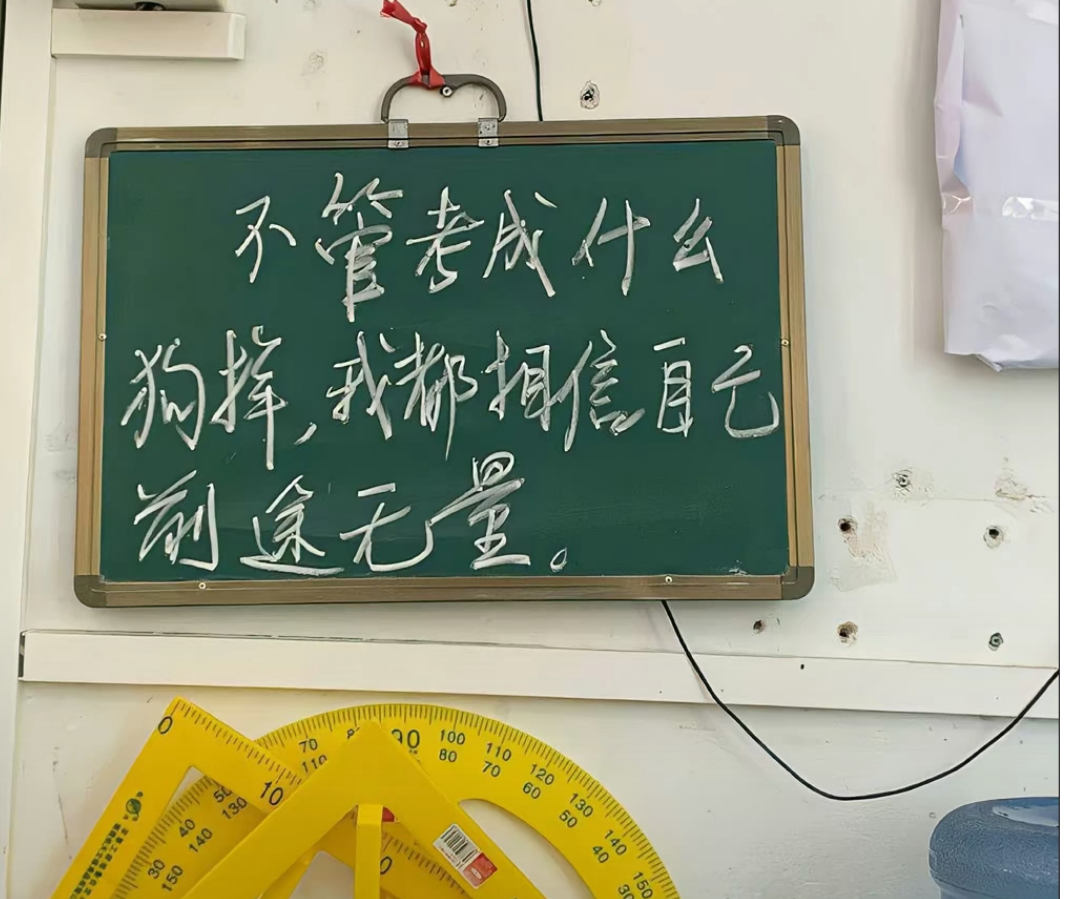 不管考成什么
狗样,我都相信自己
前途无量。
0
10
70 80 90 100 110 120 130 140 150
110 80 70 60 50 40 30
50 40 30
130 140 150
0